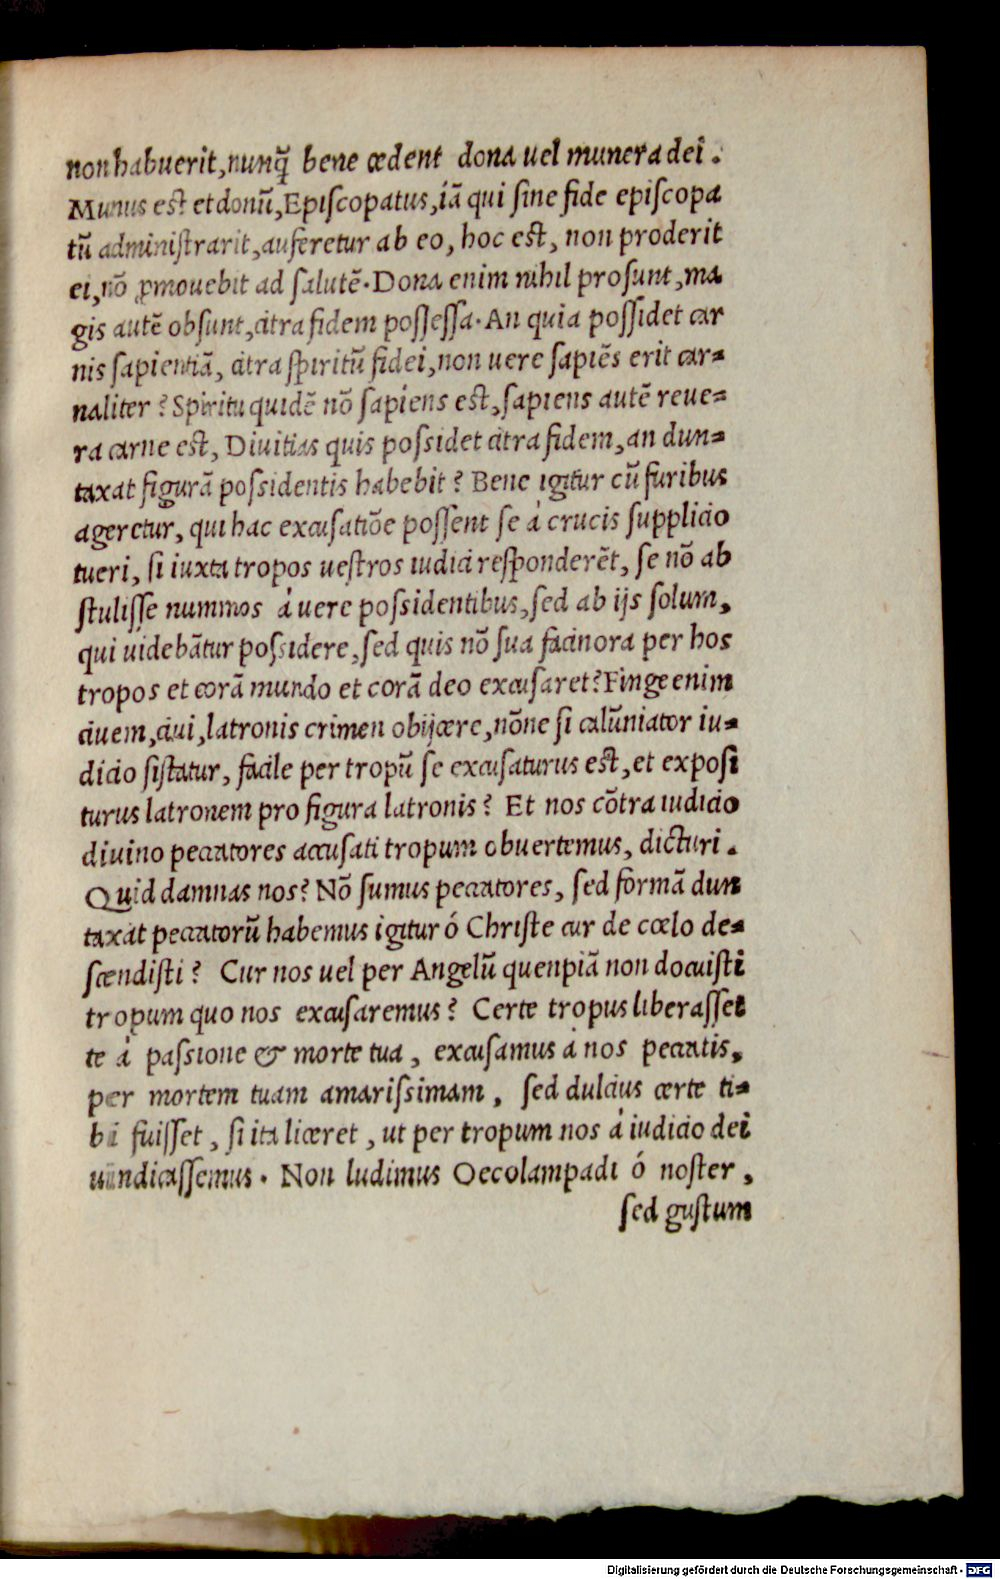 non habuerit, nunq̃ bene cedent dona uel munera dei.
Munus est et donũ, Episcopatus, iã qui sine fide episcopa
tũ administrarit, auferetur ab eo, hoc est, non proderit
ei, nõ ꝓmouebit ad salutẽ. Dona enim nihil prosunt, ma
gis autẽ obsunt, citra fidem possessa. An quia possidet car
nis sapientiã, citra spiritũ fidei, non uere sapiẽs erit car=
naliter? Spiritu quidẽ nõ sapiens est, sapiens autẽ reue=
ra carne est, Diuitias quis possidet citra fidem, an dun=
taxat figurã possidentis habebit? Bene igitur cũ furibus
ageretur, qui hac excusatiõe possent se á crucis supplicio
tueri, si iuxta tropos uestros iudici responderẽt, se nõ ab
stulisse nummos á uere possidentibus, sed ab ijs solum,
qui uidebãtur possidere, sed quis nõ sua facinora per hos
tropos et corã mundo et corã deo excusaret? Finge enim
ciuem, ciui, latronis crimen obijcere, nõne si calũniator iu=
dicio sistatur, facile per tropũ se excusaturus est, et exposi
turus latronem pro figura latronis? Et nos cõtra iudicio
diuino peccatores accusati tropum obuertemus, dicturi.
Quid damnas nos? Nõ sumus peccatores, sed formã dun
taxat peccatorũ habemus igitur ó Christe cur de cœlo de=
scendisti? Cur nos uel per Angelũ quenpiã non docuisti
tropum quo nos excusaremus? Certe tropus liberasset
te á passione & morte tua, excusamus á nos peccatis,
per mortem tuam amarissimam, sed dulcius certe ti=
bi fuisset, si ita liceret, ut per tropum nos á iudicio dei
uindicassemus. Non ludimus Oecolampadi ó noster,
sed gustum
Digitalisierung gefördert durch die Deutsche Forschungsgemeinschaft - DFG